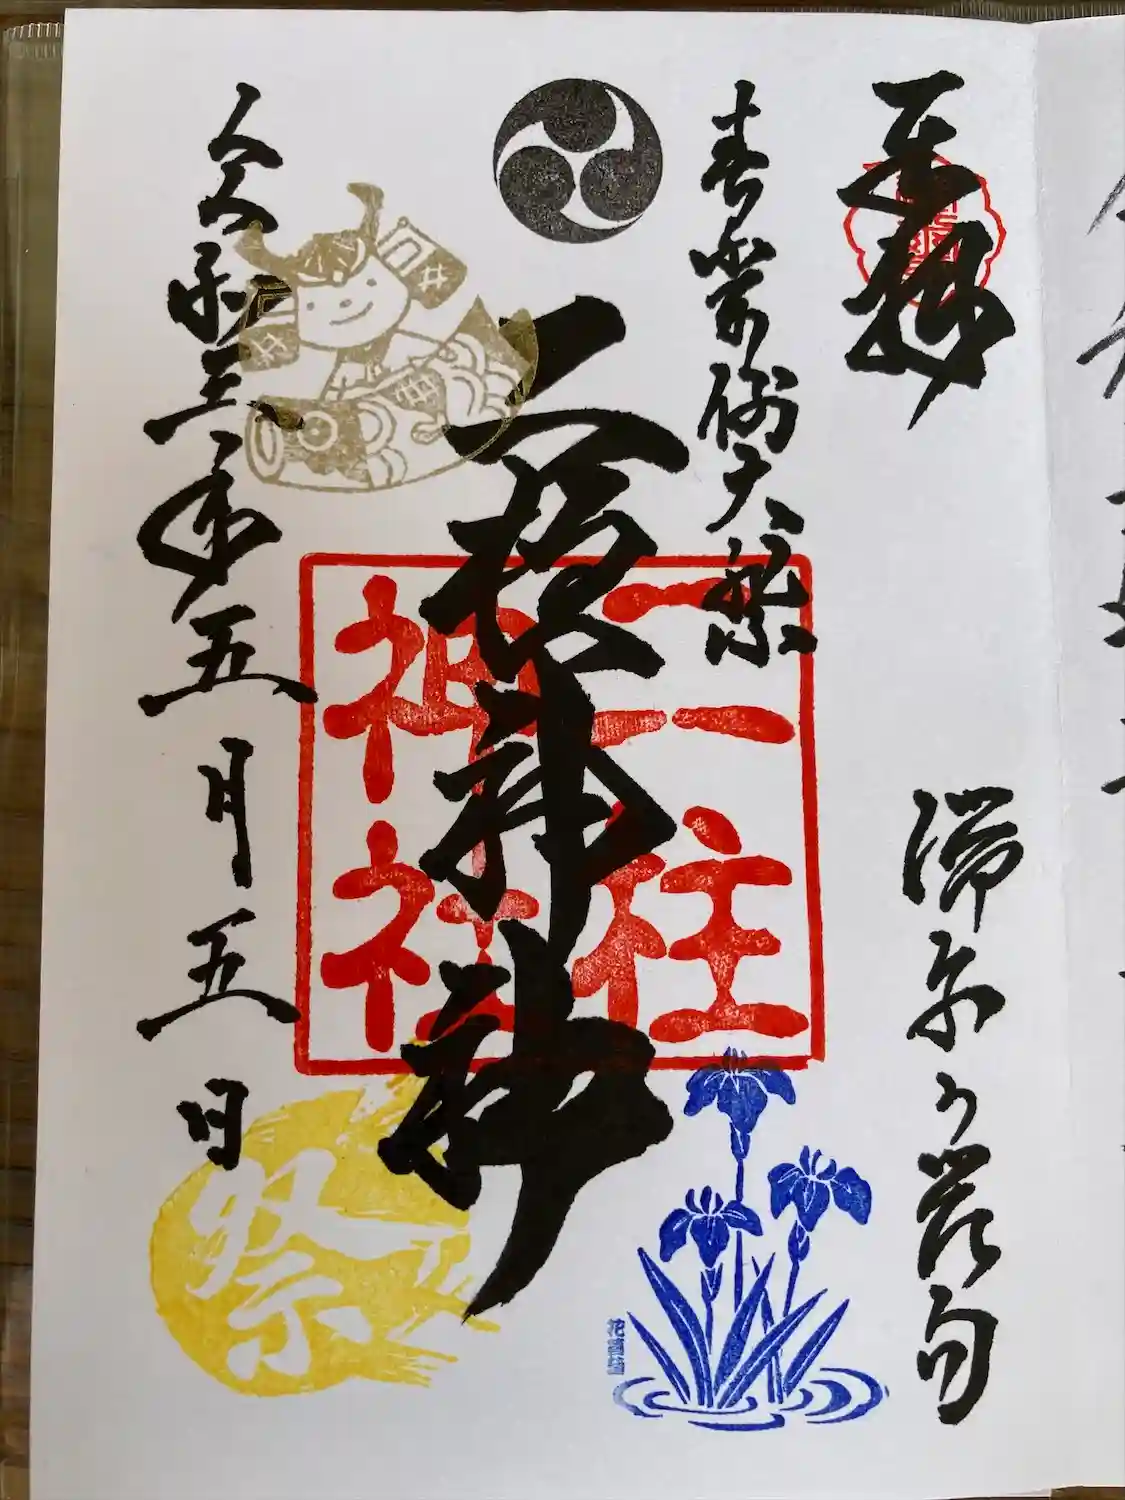 奉拝
端午の節句
春季例大祭
二柱神社
二柱
神社
令和三年五月五日
祭
花菖蒲